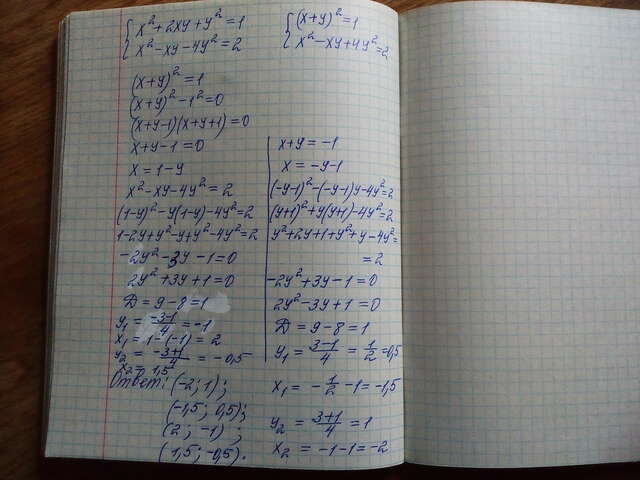 { x² + 2xy + y² = 1
x² - xy - 4y² = 2
{ (x+y)² = 1
x² - xy + 4y² = 2
(x+y)² = 1
(x+y)² - 1² = 0
(x+y-1)(x+y+1) = 0
x+y-1 = 0
x = 1-y
x² - xy - 4y² = 2
(1-y)² - y(1-y) - 4y² = 2
1-2y+y²-y+y²-4y² = 2
-2y² - 3y - 1 = 0
2y² + 3y + 1 = 0
D = 9 - 8 = 1
y₁ = (-3-1)/4 = -1
x₁ = 1-(-1) = 2
y₂ = (-3+1)/4 = -0,5
x₂ = 1,5
x+y = -1
x = -y-1
(-y-1)² - (-y-1)y - 4y² = 2
(y+1)² + y(y+1) - 4y² = 2
y² + 2y + 1 + y² + y - 4y² =
= 2
-2y² + 3y - 1 = 0
2y² - 3y + 1 = 0
D = 9 - 8 = 1
y₁ = (3-1)/4 = 1/2 = 0,5
x₁ = -1/2 - 1 = -1,5
y₂ = (3+1)/4 = 1
x₂ = -1-1 = -2
Ответ: (-2; 1);
(-1,5; 0,5);
(2; -1);
(1,5; -0,5).